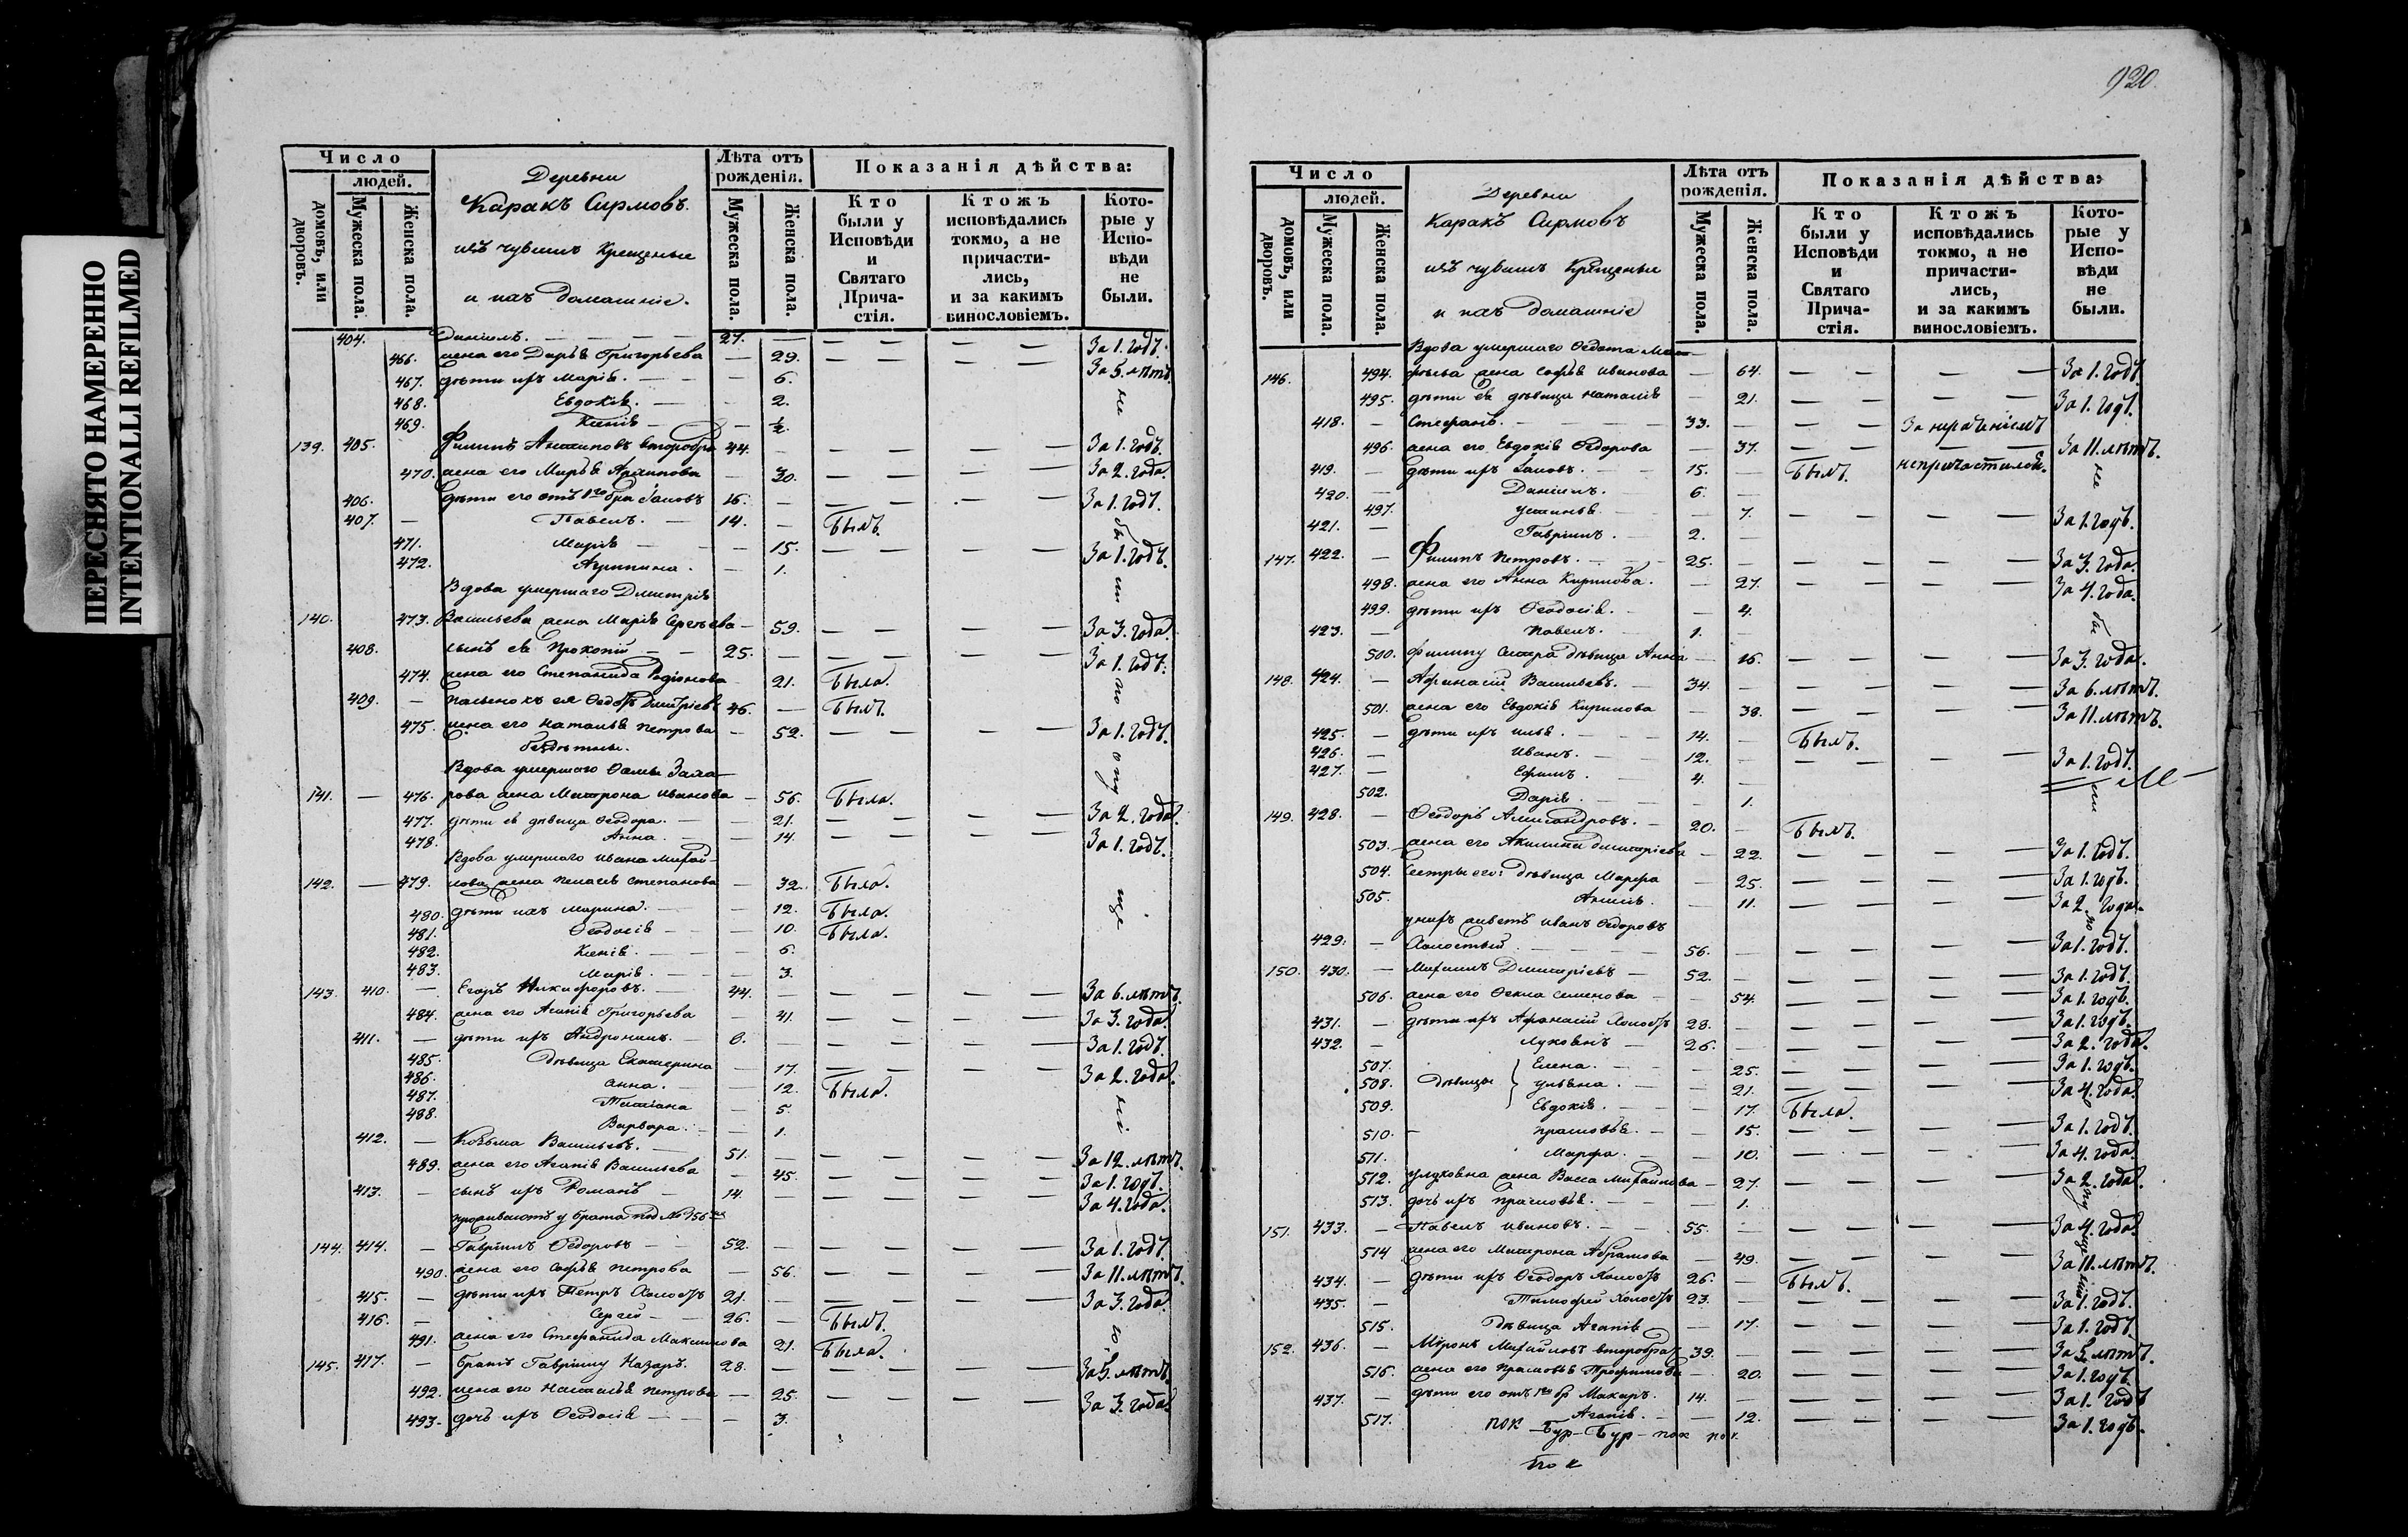 ПЕРЕСНЯТО НАМЕРЕННО
INTENTIONALLI REFILMED
Число
людей.
домовъ, или дворовъ.
Мужеска пола.
Женска пола.
Деревни
Каракъ Сирмовъ.
изъ чувашъ крещеные
и ихъ домашніе.
Лѣта отъ рожденія.
Мужеска пола.
Женска пола.
Показанія дѣйства:
Кто были у Исповѣди и Святаго Причастія.
Ктожъ исповѣдались токмо, а не причастились, и за какимъ винословіемъ.
Которые у Исповѣди не были.
404. Даніилъ. 27. За 1. годъ.
466. жена его Дарья Григорьева 29. За 5. лѣтъ.
467. дѣти ихъ Марія. 6.
468. Евдокія. 2.
469. Ксенія ½.
139. 405. Филипъ второбра 44. За 1. годъ.
470. жена его Марья Архипова 30. За 2. года.
406. дѣти его отъ 1го бра Іаковъ 16. За 1. годъ.
407. Павелъ. 14. былъ.
471. Марія 15. За 1. годъ.
472. Агрипина. 1.
Вдова умершаго Димитрія
140. 473. Васильева жена Марія Сергеева 59. За 3. года.
408. сынъ ея Прокопій 25. За 1. годъ.
474. жена его Степанида Родіонова 21. была.
409. пасынокъ ея Ѳедоръ Димитріевъ 46. былъ.
475. жена его Наталья Петрова 52. За 1. годъ.
бездѣтны.
Вдова умершаго Ѳомы Заха-
141. 476. рова жена Матрона Иванова 56. была.
477. дѣти ея дѣвица Ѳеодора. 21. За 2. года.
478. Анна. 14. За 1. годъ.
Вдова умершаго Ивана Михай-
142. 479. лова жена Пелагея Степанова 32. была.
480. дѣти ихъ Марина. 12. была.
481. Ѳеодосія 10. была.
482. Ксенія. 6.
483. Марія. 3.
143. 410. Егоръ Никифоровъ. 44. За 6. лѣтъ.
484. жена его Агапія Григорьева 41. За 3. года.
411. дѣти ихъ Андроникъ. 8. За 1. годъ.
485. дѣвица Екатерина 17. За 2. года.
486. Анна. 12. была.
487. Татіана 5.
488. Варвара. 1.
412. Козьма Васильевъ. 51. За 12. лѣтъ.
489. жена его Агапія Васильева 45. За 1. годъ.
413. сынъ ихъ Романъ 14. За 4. года.
проживаютъ у брата подъ № 156мъ
144. 414. Гавріилъ Ѳедоровъ 52. За 1. годъ.
490. жена его Софья Петрова 56. За 11. лѣтъ.
415. дѣти ихъ Петръ Холостъ 21. За 3. года.
416. Сергей 26. былъ.
491. жена его Стефанида Максимова 21. была.
145. 417. братъ Гавріилу Назаръ. 28. За 5. лѣтъ.
492. жена его Наталья Петрова 25. За 3. года.
493. дочь ихъ Ѳеодосія 3.
не бы ли по о ну ще
920.
Число
людей.
домовъ, или дворовъ.
Мужеска пола.
Женска пола.
Деревни
Каракъ Сирмовъ
изъ чувашъ крещеные
и ихъ домашніе
Лѣта отъ рожденія.
Мужеска пола.
Женска пола.
Показанія дѣйства:
Кто были у Исповѣди и Святаго Причастія.
Ктожъ исповѣдались токмо, а не причастились, и за какимъ винословіемъ.
Которые у Исповѣди не были.
Вдова умершаго Ѳедота Мат-
146. 494. фѣева жена Софья Иванова 64. За 1. годъ.
495. дѣти ея дѣвица Наталія 21. За 1. годъ.
418. Стефанъ. 33. За нерадѣніемъ
496. жена его Евдокія Ѳедорова 37. За 11. лѣтъ.
419. дѣти ихъ Іаковъ. 15. былъ. непричастился.
420. Даніилъ. 6.
497. Устинья 7. За 1. годъ.
421. Гавріилъ. 2.
147. 422. Филипъ Петровъ. 25. За 3. года.
498. жена его Анна Кирилова. 27. За 4. года.
499. дѣти ихъ Ѳеодосія. 4.
423. Павелъ. 1.
500. Филипу сестра дѣвица Анна 16. За 3. года.
148. 424. Афанасій Васильевъ. 34. За 6. лѣтъ.
501. жена его Евдокія Кирилова 38. За 11. лѣтъ.
425. дѣти ихъ Илья. 14. былъ.
426. Иванъ. 12. За 1. годъ.
427. Ефимъ. 4.
502. Дарія. 1.
149. 428. Ѳеодоръ Александровъ. 20. былъ.
503. жена его Акилина Димитріева 22. За 1. годъ.
504. Сестры его: дѣвица Марфа 25. За 1. годъ.
505. 11. За 2. года.
у нихъ живетъ Иванъ Ѳедоровъ
429. Холостый. 56. За 1. годъ.
150. 430. Михаилъ Димитріевъ 52. За 1. годъ.
506. жена его Ѳекла Семенова 54. За 1. годъ.
431. дѣти ихъ Афанасій Холостъ 28. За 1. годъ.
432. Луковнъ 26. За 2. года.
507. Елена. 25. За 1. годъ.
508. дѣвицы Ульяна. 21. За 4. года.
509. Евдокія. 17. была.
510. Прасковья. 15. За 1. годъ.
511. Марфа. 10. За 4. года.
512. у Луковна жена Васса Михайлова 27. За 2. года.
513. дочь ихъ Прасковья. 1.
151. 433. Павелъ Ивановъ. 55. За 4. года.
514 жена его Матрона Абрамова 49. За 11. лѣтъ.
434. дѣти ихъ Ѳеодоръ Холостъ 26. былъ.
435. Тимофей Холостъ 23. За 1. годъ.
515. дѣвица Агапія 17. За 1. годъ.
152. 436. Миронъ Михайловъ второбра 39. За 5. лѣтъ.
516. жена его Прасковья Трофимова 20. За 1. годъ.
437. дѣти его отъ 1го бр Макаръ. 14. За 1. годъ
517. Агапія. 12. За 1. годъ.
пок Бур-Бур-пок пок